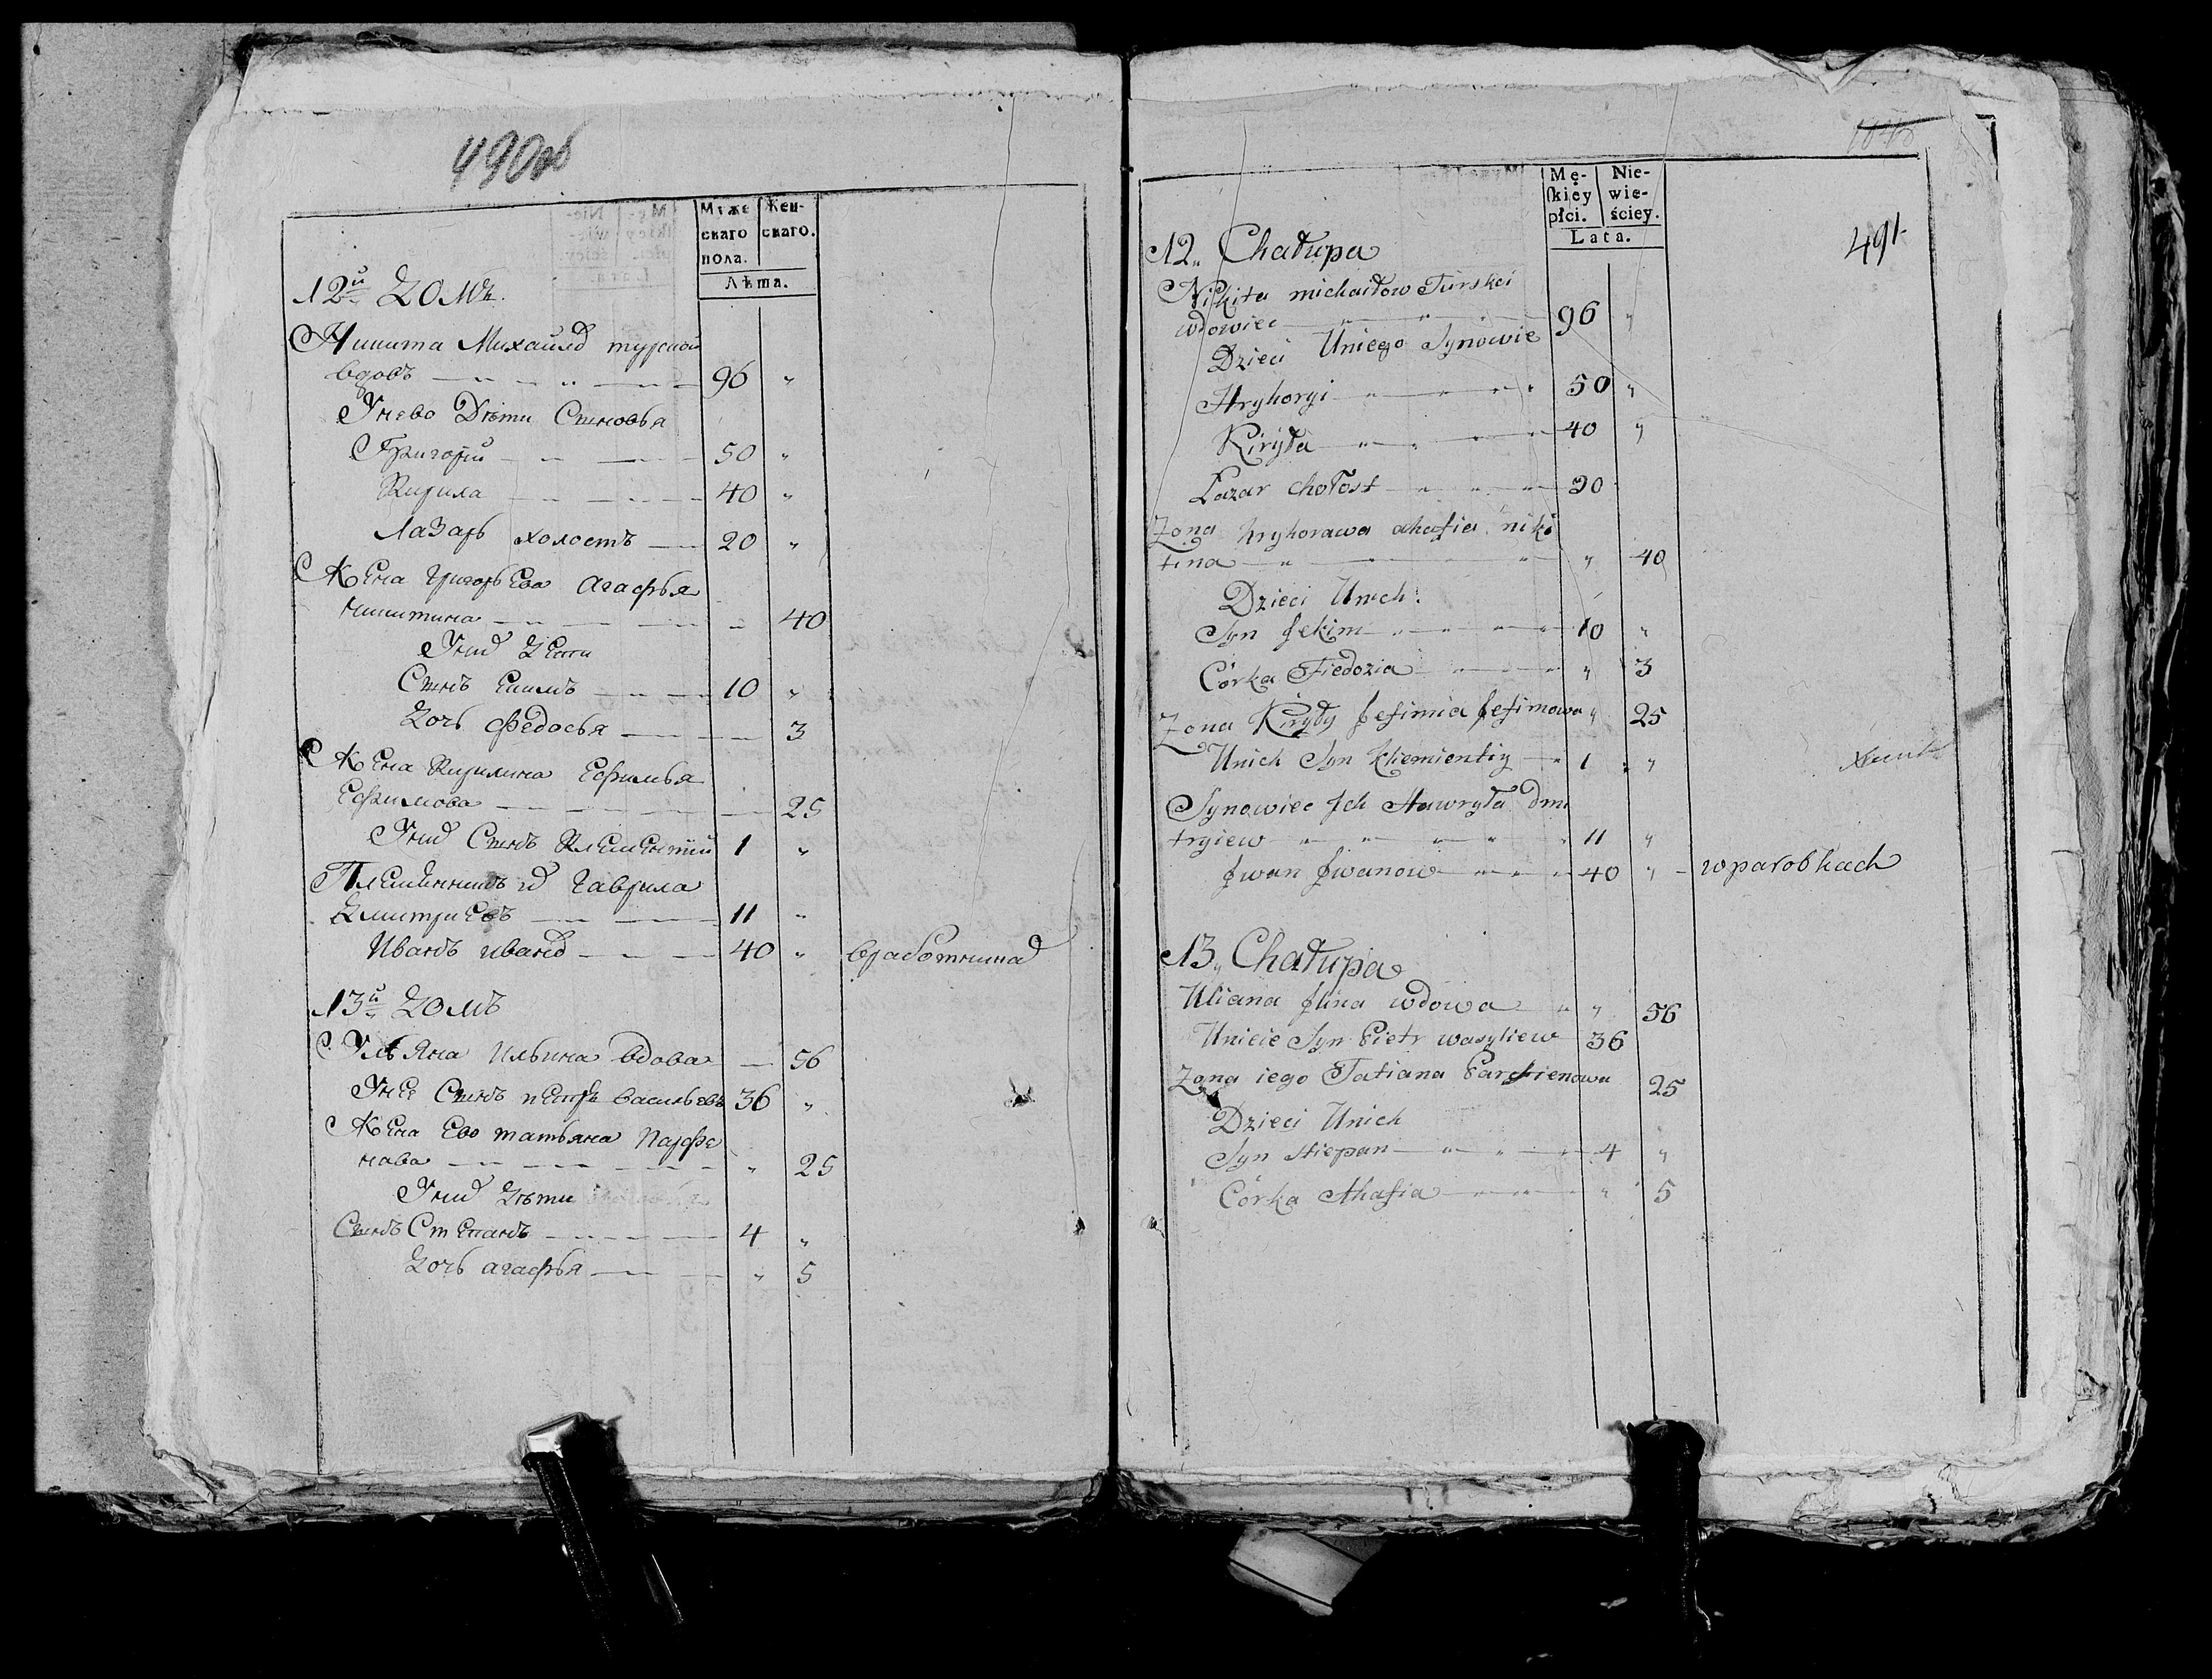 490об
Муже
скаго
пола.
Жен-
скаго.
Лѣта.
12й Домъ.
Никита Михайлов турской
вдовъ 96 „
Унево Дѣти Сыновья
Григорий 50 „
Кирила 40 „
Лазарь холостъ 20 „
Жена григорьева агафья
никитина „ 40
Уних Дети
Сынъ Екимъ 10 „
Дочь федосья 3
Жена кирилина Ефимья
Ефимова 25
Уних Сынъ Клементий 1 „
Племянникъ их гаврила
Дмитриевъ 11 „
Иванъ иванов 40 „ вработниках
13й Домъ
Ульяна ильина вдова 56
Унее Сынъ петръ васильевъ 36 „
Жена Ево татьяна парфе
нова „ 25
Уних Дѣти
Сынъ Степанъ 4 „
Дочь агафья „ 5
491
Mę-
ſkiey
płci.
Nie-
wie-
ściey.
Lata.
12„ Chałupa
Nikita michaiłow Turskoi
wdowiec 96 „
Dzieci Uniego Synowie
Hryhoryi 50 „
Kiryła 40 „
Łazar chołost 20
Zona hryhorawa ahafia niki
tina „ 40
Dzieci Unich.
Syn Jekim 10 „
Córka Fiedozia „ 3
Zona Kiryły Jefimia Jefimowa „ 25
Unich Syn Kliemientiy 1 „
Synowiec Jch Hawryła dmi
tryiew 11 „
Jwan Jwanow 40 „ wparobkach
13„ Chałupa
Uliana Jlina wdowa „ 56
Unieie Syn Pietr wasyliew 36
Zona iego Tatiana Parfienowa 25
Dzieci Unich
Syn Stiepan 4 „
Córka Ahafia „ 5